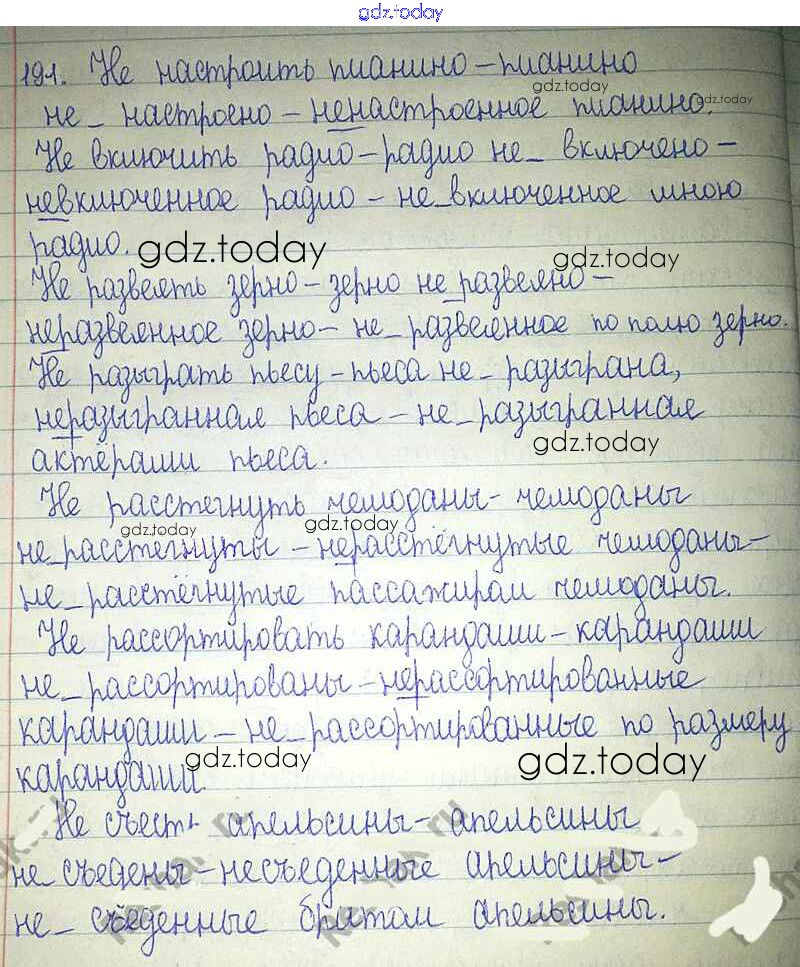 gdz.today
191. Не настроить пианино – пианино
gdz.today
gdz.today
не_настроено – ненастроенное пианино.
Не включить радио – радио не_включено –
невключенное радио – не_включенное мною
радио.
gdz.today
gdz.today
Не развеять зерно – зерно не_развеяно –
неразвеянное зерно – не_развеянное по полю зерно.
Не разыграть пьесу – пьеса не_разыграна,
неразыгранная пьеса – не_разыгранная
актёрами пьеса.
gdz.today
Не расстегнуть чемоданы – чемоданы
gdz.today
gdz.today
не_расстегнуты – нерасстёгнутые чемоданы –
не_расстёгнутые пассажирам чемоданы.
Не рассортировать карандаши – карандаши
не_рассортированы – нерассортированные
карандаши – не_рассортированные по размеру
карандаши.
gdz.today
gdz.today
Не съесть апельсины – апельсины
не_съедены – несъеденные апельсины –
не_съеденные братом апельсины.